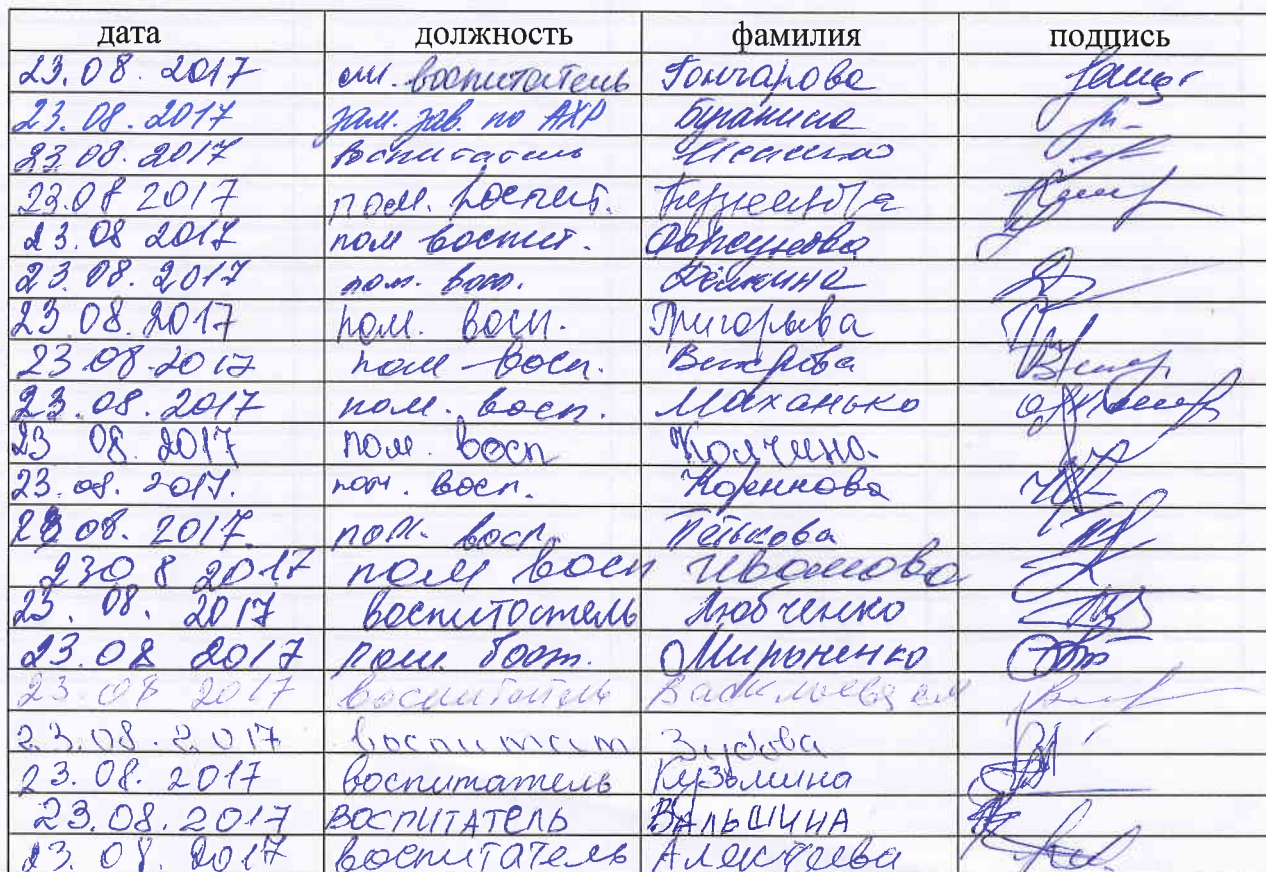 дата должность фамилия подпись
23.08.2017 ст. воспитатель Гончарова
23.08.2017 зам. зав. по АХР Буракина
23.08.2017 воспитатель
23.08 2017 пом. воспит.
23.08 2017 пом воспит.
23.08.2017 пом. восп.
23.08.2017 пом. восп. Григорьева
23.08.2017 пом восп. Вихрова
23.08.2017 пом. восп. Маханько
23 08.2017 пом. восп Колчина
23.08.2017. пом. восп. Коренкова
23 08.2017. пом. восп. Петькова
23 08 2017 пом восп Иванова
23. 08. 2017 воспитатель Любченко
23.08 2017 пом. Мироненко
23.08 2017 воспитатель Васильева
23.08.2017 воспитат
23.08.2017 воспитатель Кузьмина
23.08.2017 ВОСПИТАТЕЛЬ ВАЛЬШИНА
23.08 2017 воспитатель Алексеева